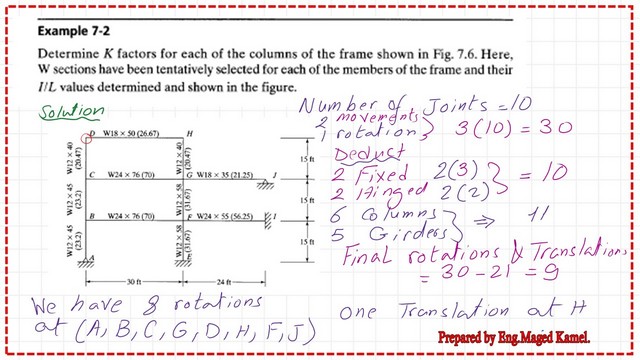 Example 7-2
Determine K factors for each of the columns of the frame shown in Fig. 7.6. Here,
W sections have been tentatively selected for each of the members of the frame and their
I/L values determined and shown in the figure.
Solution
Number of Joints = 10
2 movements
1 rotation } 3(10) = 30
Deduct
2 Fixed 2(3)
2 Hinged 2(2) } = 10
6 Columns
5 Girders } ⇒ 11
Final rotations & Translations
= 30 - 21 = 9
D W18 × 50 (26.67) H
W12 × 40 (20.47)
W12 × 40 (20.47)
15 ft
C W24 × 76 (70) G W18 × 35 (21.25) J
W12 × 45 (23.2)
W12 × 58 (31.67)
15 ft
B W24 × 76 (70) F W24 × 55 (56.25) I
W12 × 45 (23.2)
W12 × 58 (31.67)
15 ft
A
30 ft 24 ft
We have 8 rotations
at (A, B, C, G, D, H, F, J)
one Translation at H
Prepared by Eng.Maged Kamel.